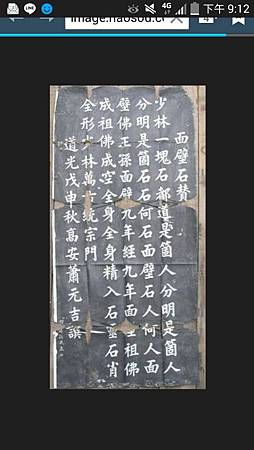 4G 下午 9:12
面壁石贊
少林一塊石都道是箇人分明是箇人
分明是箇石石何石面壁石人何人面
壁佛王孫面壁九年經九年面壁祖佛
成祖佛成空全身全身精入石靈石肖
全形少林萬古統宗門
道光戊申秋高安蕭元吉譔